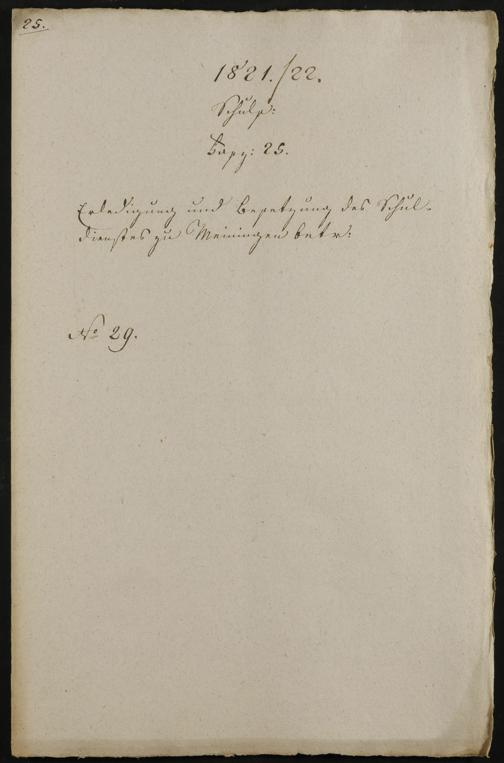 25.
1821./22.
Schule:
Fasz: 25.
Erledigung und Besetzung des Schul-
dienstes zu Meiningen betr:
No 29.